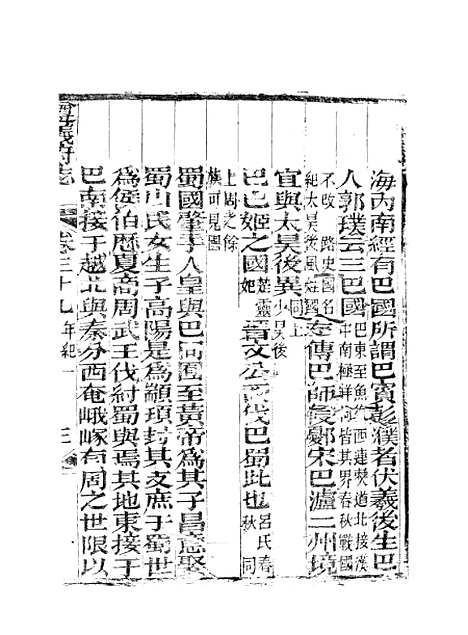 海內南經有巴國所謂巴賓彭濮者伏羲後生巴
人郭璞云三巴國巴東至魚復西連僰道北接漢中南極牂牁皆其界春秋戰國
不改路史國名紀太昊後風姓國左傳巴師侵鄾宋巴瀘二州境
宜與太昊後異同上少昊後
巴巴姬之國楚靈晉文公伐巴蜀此也呂氏春秋同
上周之餘
族可見國
蜀國肇于人皇與巴同囿至黃帝為其子昌意娶
蜀山氏女生子高陽是為顓頊封其支庶于蜀世
為侯伯歷夏商周武王伐紂蜀與焉其地東接于
巴南接于越北與秦分西奄峨嶓有周之世限以
卷三十九
年紀一
三